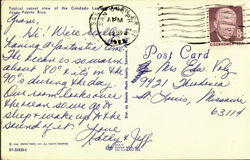 Typical sunset view of the Condado
Puerto Rico.
Gram,
Hi! We're really
having a fantastic time.
The ocean is so warm,
about 80° & its in the
90's during the day.
Our room looks over
the ocean so we go to
sleep & wake up to the
sound of it.
Love,
Kathy & Jeff
Post Card
PM
Mrs Edw Volz
9421
St. Louis, Missouri
63114